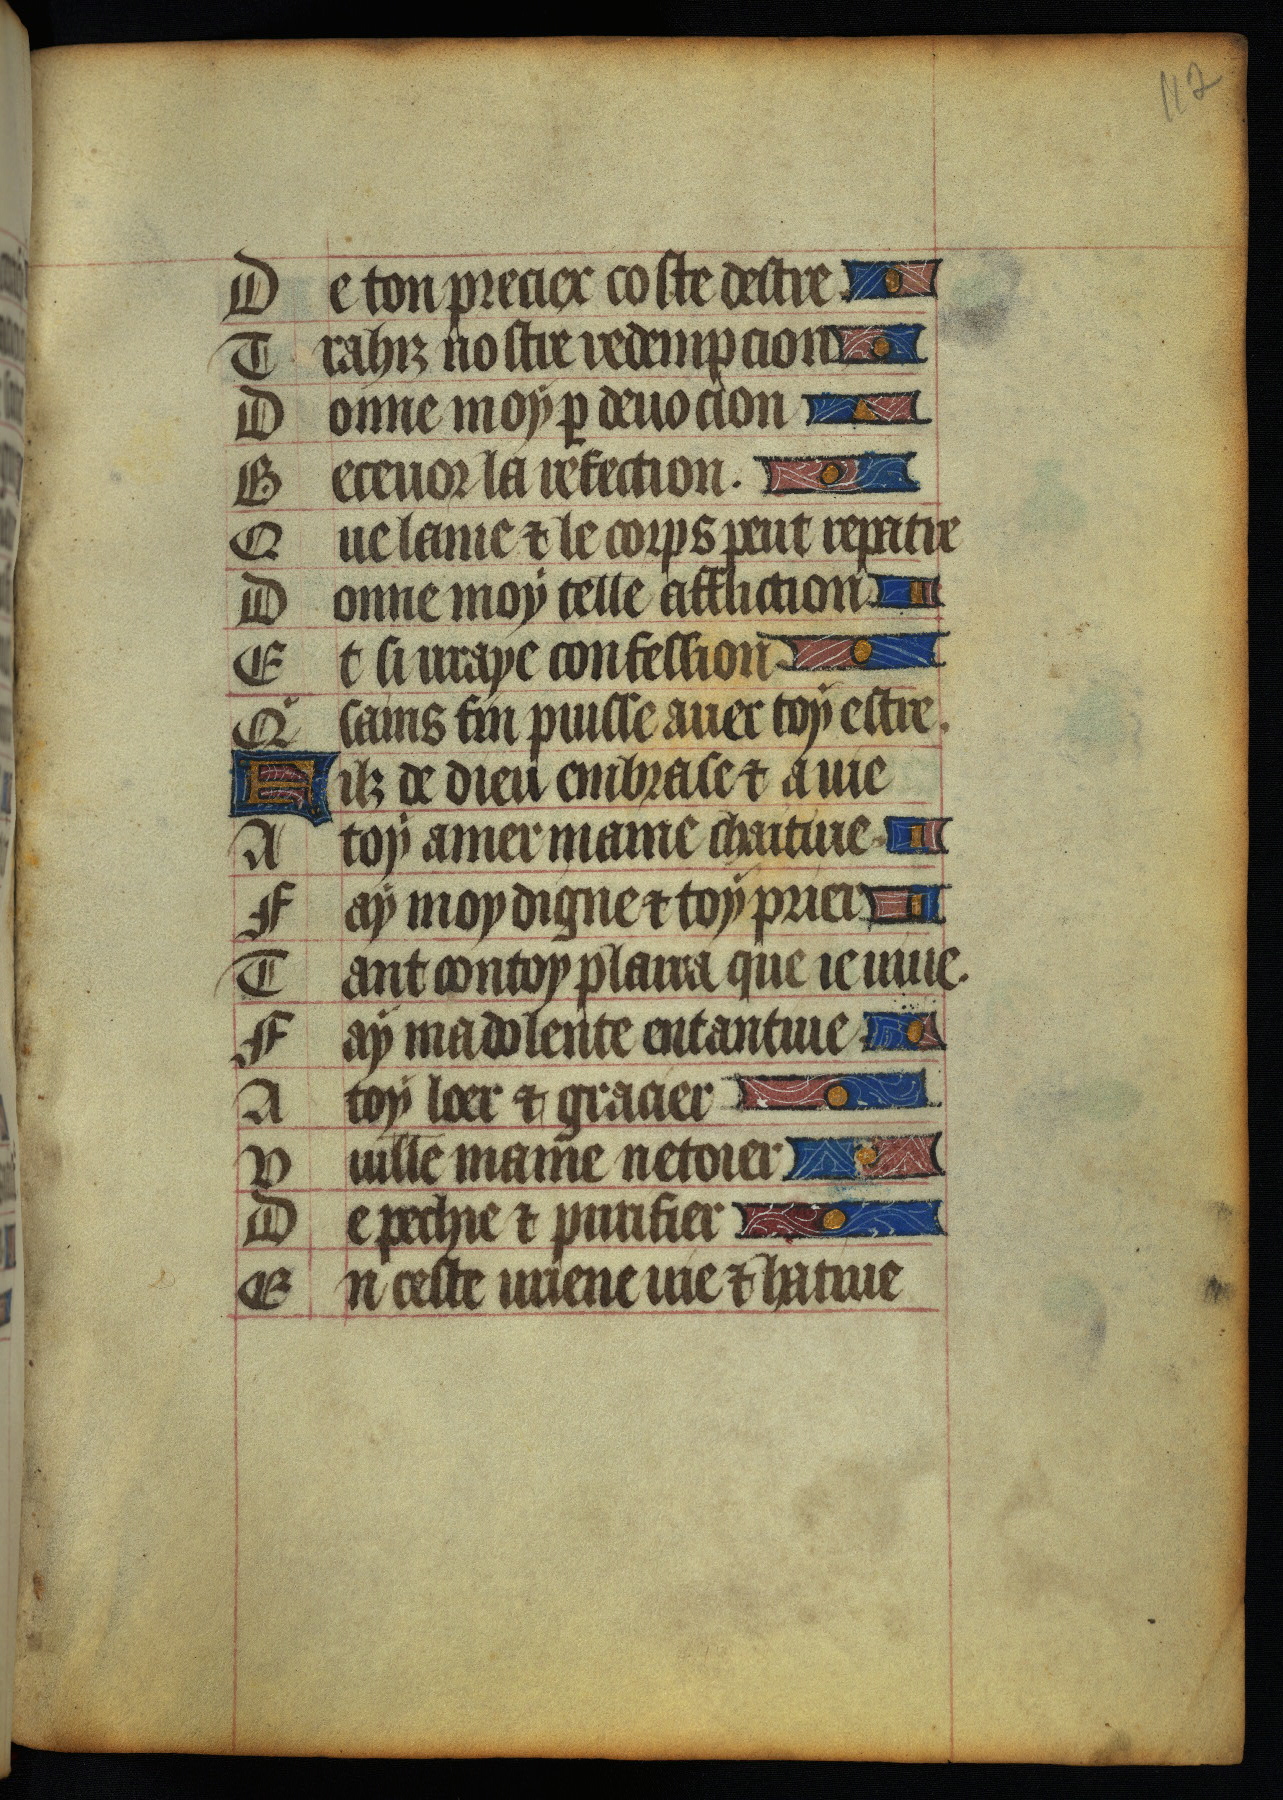 112
De ton precier coste destre
Trahiz nostre redempcion
Donne moy p deuocion
Receuoir la refection.
Que lame & le corps peut repatre
Donne moy telle affliction
Et si uraye confession
Q' sains fin puisse auer toy estre.
Filz de dieu embrase & auie
A toy amer mame chaitiue
Fay moy digne & toy prier
Tant con toy plaira que ie uiue.
Fay ma dolente ententiue
A toy loer & gracier
Vuille mame netoier
De pechie & purifier
En ceste uiene uie & hatiue